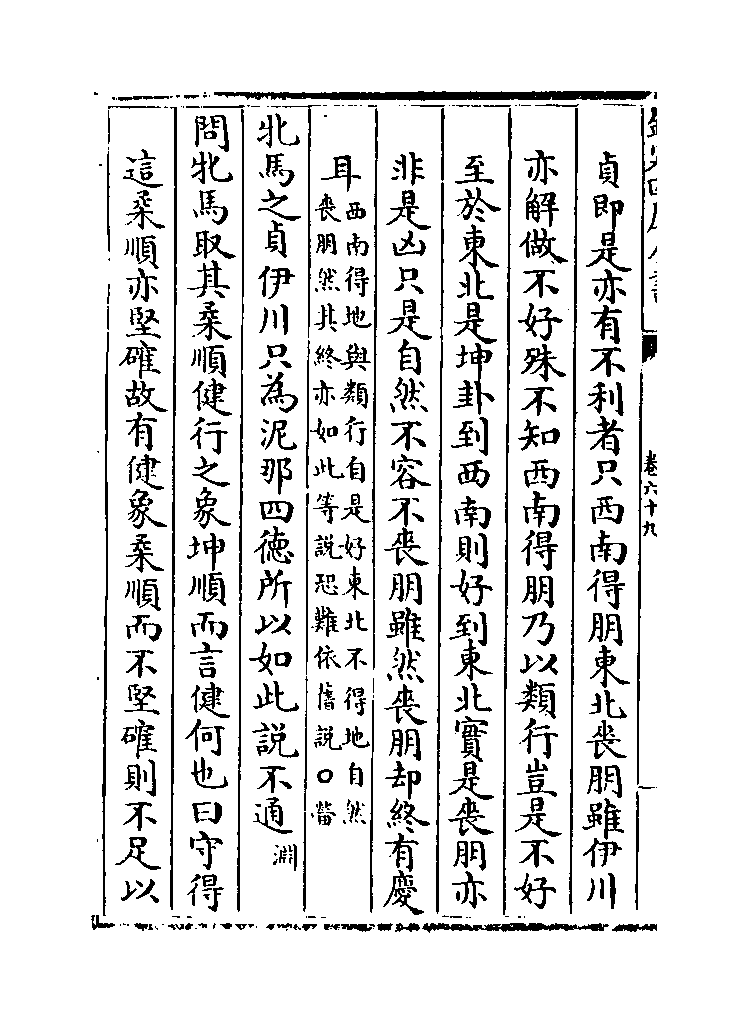 欽定四庫全書
卷六十九
貞即是亦有不利者只西南得朋東北喪朋雖伊川
亦解做不好殊不知西南得朋乃以類行豈是不好
至於東北是坤卦到西南則好到東北實是喪朋亦
非是凶只是自然不容不喪朋雖然喪朋却終有慶
耳西南得地與類行自是好東北不得地自然
喪朋然其終亦如此等說恐難依舊說○㽦
牝馬之貞伊川只為泥那四德所以如此說不通淵
問牝馬取其柔順健行之象坤順而言健何也曰守得
這柔順亦堅確故有健象柔順而不堅確則不足以